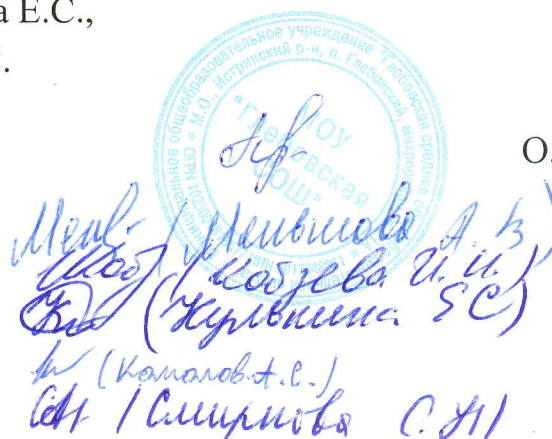 а Е.С.,
.
муниципальное общеобразовательное учреждение "Глебовская средняя
М.О., Истринский р-н, п. Глебовский, микрор
МОУ
"Глебовская
СОШ"
О.
(Меньшова А. В)
Кобзева И. И.)
(Кульшина ЕС)
(Комалов А. С.)
(Смирнова С. Н)